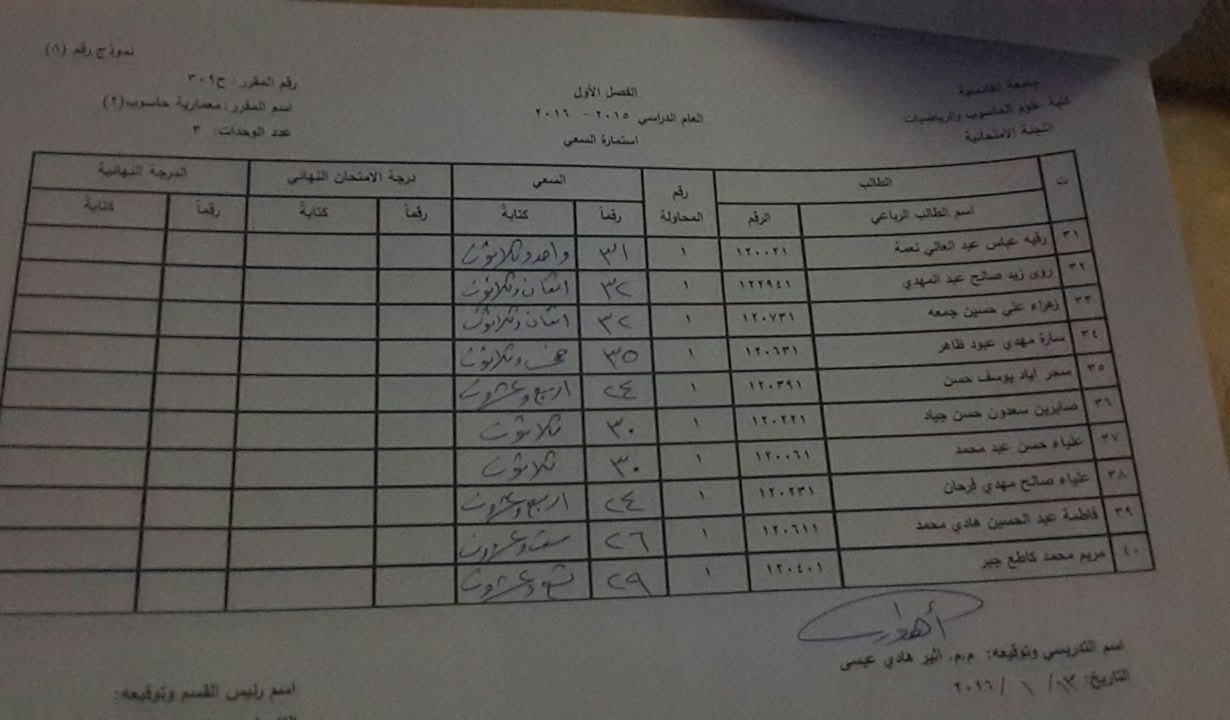 نموذج رقم (٨)
جامعة القادسية
كلية علوم الحاسوب والرياضيات
اللجنة الامتحانية
الفصل الأول
العام الدراسي ٢٠١٥ - ٢٠١٦
استمارة السعي
رقم المقرر: ح٣٠٩
اسم المقرر: معمارية حاسوب(٢)
عدد الوحدات: ٣
ت الطالب رقم المحاولة السعي درجة الامتحان النهائي الدرجة النهائية
اسم الطالب الرباعي الرقم رقماً كتابةً رقماً كتابةً رقماً كتابةً
٣١ رقيه عباس عبد العالي نعمة ١٢٠٠٢١ ١ ٣١ واحد وثلاثون
٣٢ روى زيد صالح عبد المهدي ١٢٢٩٤١ ١ ٣٢ اثنان وثلاثون
٣٣ زهراء علي حسين جمعه ١٢٠٧٣١ ١ ٣٢ اثنان وثلاثون
٣٤ سارة مهدي عبود ظاهر ١٢٠٦٣١ ١ ٣٥ خمس وثلاثون
٣٥ سحر اياد يوسف حسن ١٢٠٣٩١ ١ ٢٤ اربع وعشرون
٣٦ صابرين سعدون حسن جياد ١٢٠٢٢١ ١ ٣٠ ثلاثون
٣٧ علياء حسن عبد محمد ١٢٠٠٦١ ١ ٣٠ ثلاثون
٣٨ علياء صالح مهدي فرحان ١٢٠٢٣١ ١ ٢٤ اربع وعشرون
٣٩ فاطمة عبد الحسين هادي محمد ١٢٠٦١١ ١ ٢٦ ست وعشرون
٤٠ مريم محمد كاطع جبر ١٢٠٤٠١ ١ ٢٩ تسع وعشرون
اسم التدريسي وتوقيعه: م.م. اثير هادي عيسى
التاريخ: ١٣/ ١ /٢٠١٦
اسم رئيس القسم وتوقيعه: